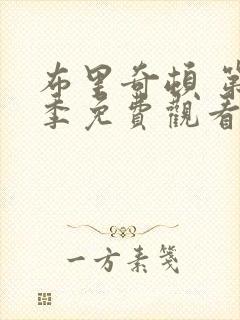 布里奇頓 第
季免費觀看
一方素箋